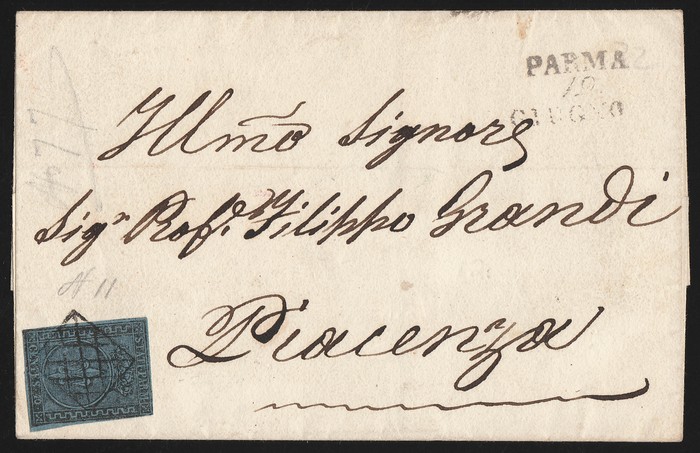 PARMA
12
GIUGNO
Illmo Signore
Sigr Profr Filippo Grandi
N 11
Piacenza